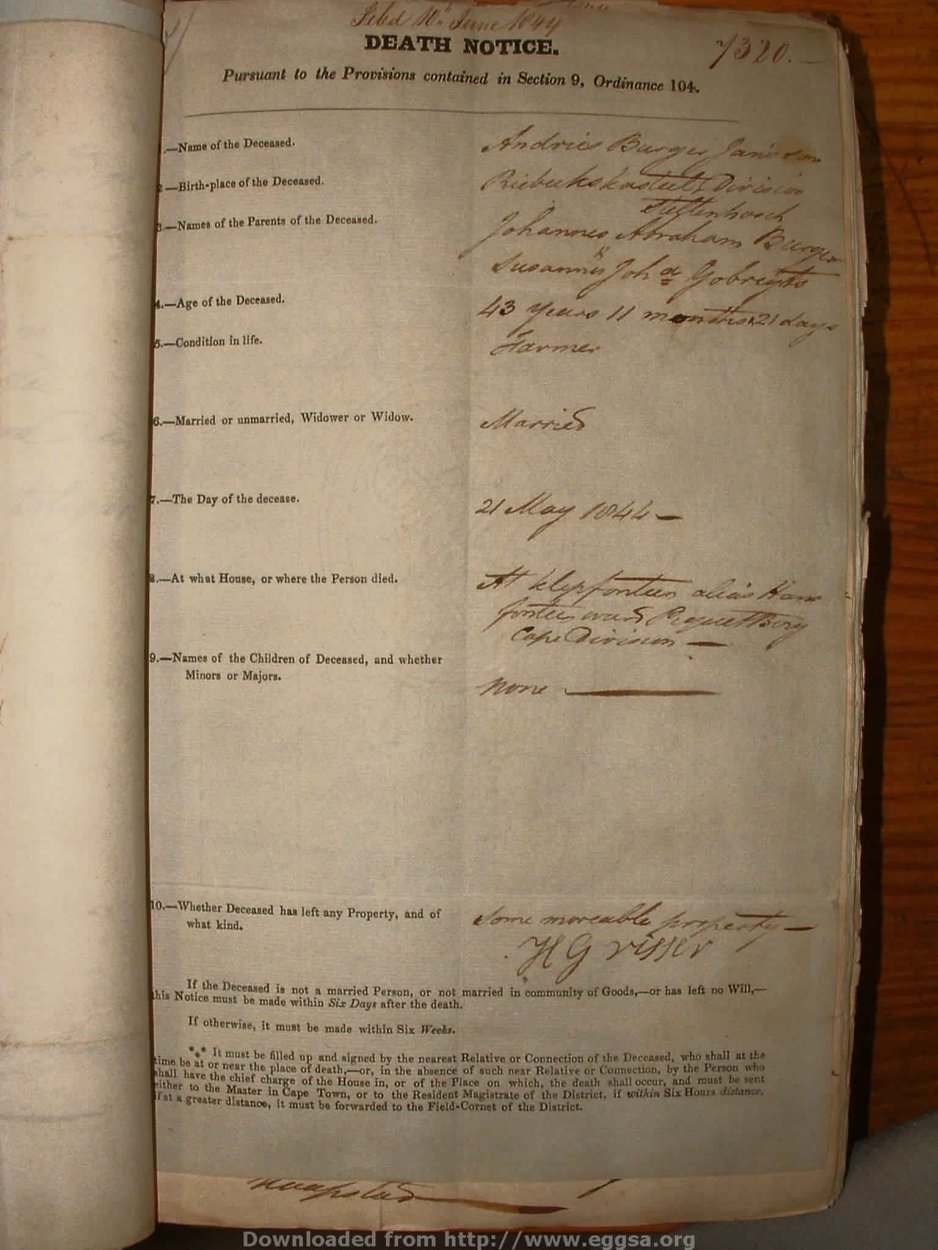 Filed 10th June 1844
7320.—
DEATH NOTICE.
Pursuant to the Provisions contained in Section 9, Ordinance 104.
1.—Name of the Deceased.
Andries Burger Jans son
2.—Birth-place of the Deceased.
Division
3.—Names of the Parents of the Deceased.
Johannes Abraham Burger
Joh de Gobregts
4.—Age of the Deceased.
43 Years 11 months & 21 days
5.—Condition in life.
Farmer
6.—Married or unmarried, Widower or Widow.
Married
7.—The Day of the decease.
21 May 1844 —
8.—At what House, or where the Person died.
At klipfontein alias
Cape Division —
9.—Names of the Children of Deceased, and whether
Minors or Majors.
none —
10.—Whether Deceased has left any Property, and of
what kind.
Some moveable property —
H G Visser
If the Deceased is not a married Person, or not married in community of Goods,—or has left no Will,—
this Notice must be made within Six Days after the death.
If otherwise, it must be made within Six Weeks.
*** It must be filled up and signed by the nearest Relative or Connection of the Deceased, who shall at the
time be at or near the place of death,—or, in the absence of such near Relative or Connection, by the Person who
shall have the chief charge of the House in, or of the Place on which, the death shall occur, and must be sent
either to the Master in Cape Town, or to the Resident Magistrate of the District, if within Six Hours distance,
if at a greater distance, it must be forwarded to the Field-Cornet of the District.
Downloaded from http://www.eggsa.org